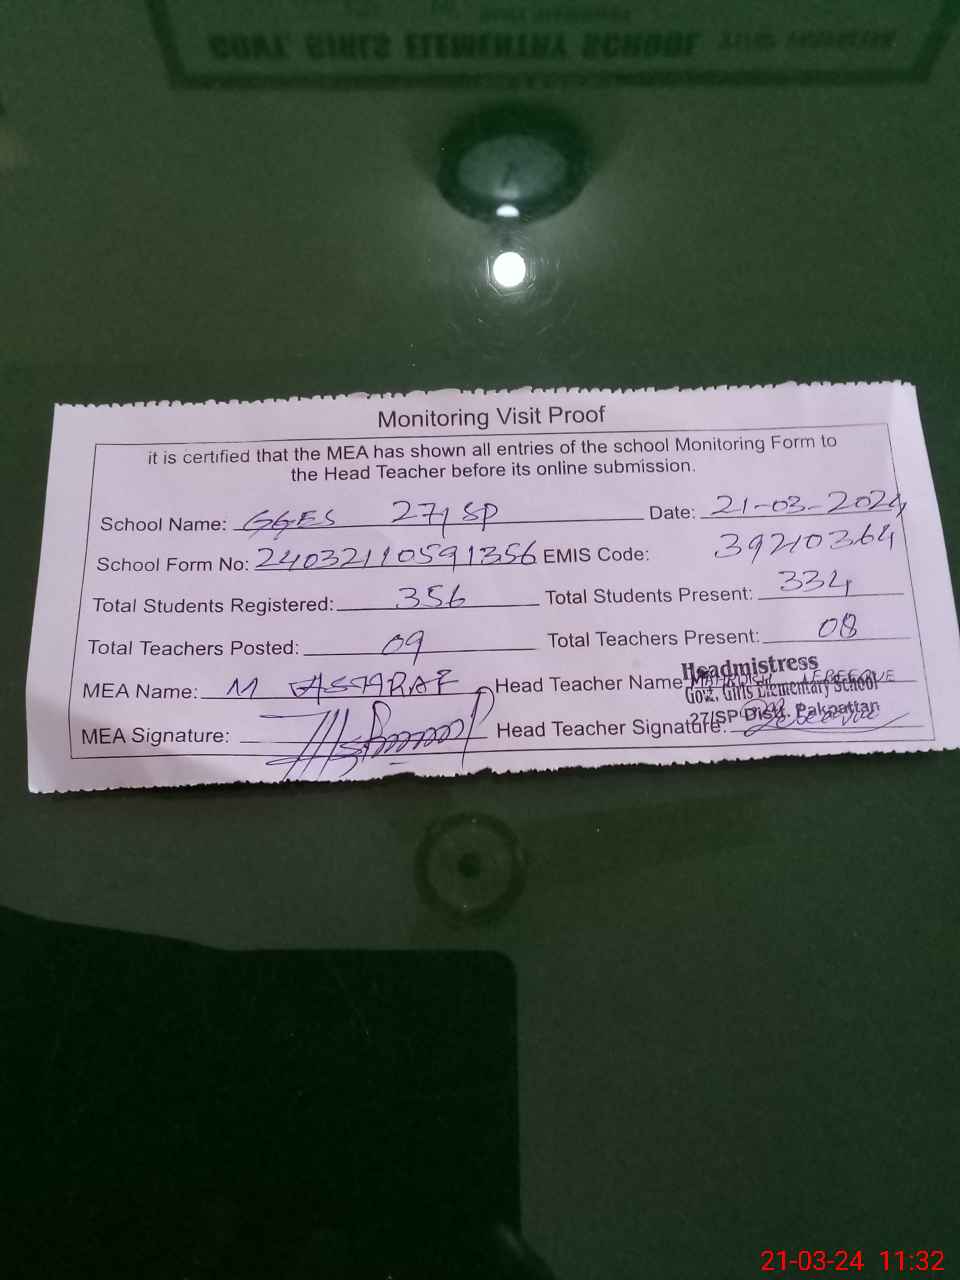 GOVT. GIRLS ELEMENTARY SCHOOL
Monitoring Visit Proof
it is certified that the MEA has shown all entries of the school Monitoring Form to
the Head Teacher before its online submission.
School Name: GGES 27/SP Date: 21-03-2024
School Form No: 24032110591356 EMIS Code: 39210364
Total Students Registered: 356 Total Students Present: 334
Total Teachers Posted: 09 Total Teachers Present: 08
Headmistress
MEA Name: M ASHRAF Head Teacher Name
Govt. Girls Elementary School
27/SP Distt. Pakpattan
MEA Signature: Head Teacher Signature:
21-03-24 11:32